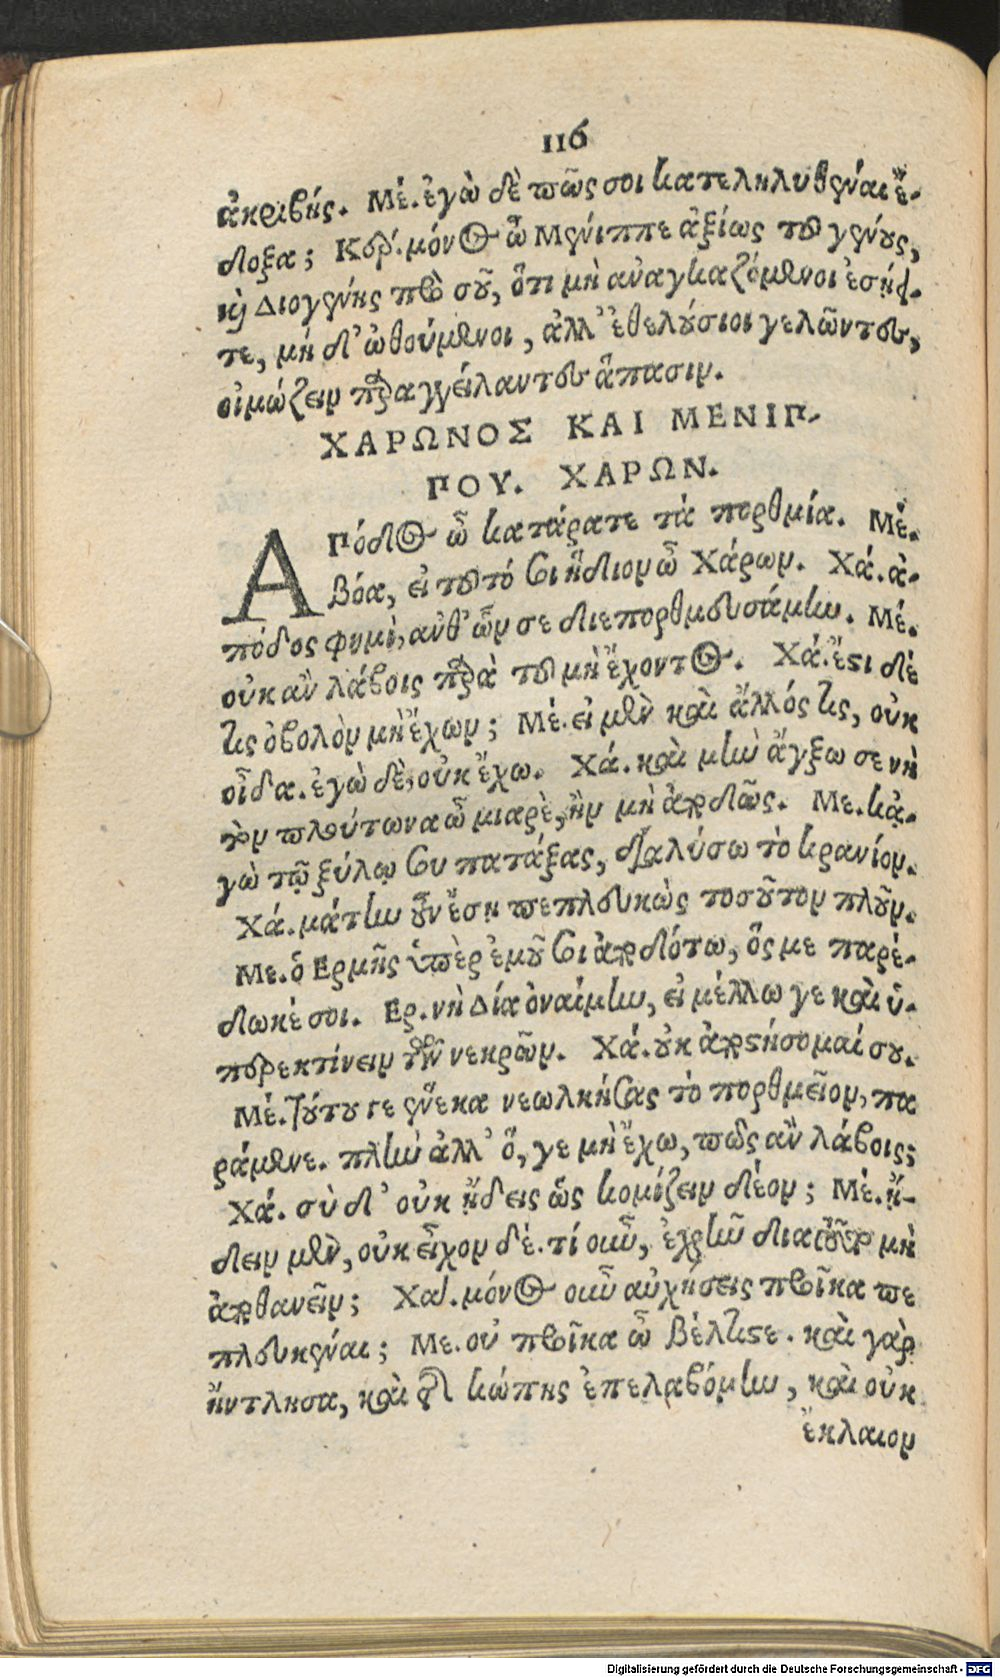 116
ἀκριβής. Μέ. ἐγὼ δὲ πῶς σοι κατεληλυθέναι ἔ-
δοξα; Κέρ. μόνος ὦ Μένιππε ἀξίως τοῦ γένους,
καὶ Διογένης πρὸ σοῦ, ὅτι μὴ ἀναγκαζόμενοι ἐσῄει-
τε, μὴ δ' ὠθούμενοι, ἀλλ' ἐθελούσιοι γελῶντες,
οἰμώζειν παραγγείλαντες ἅπασιν.
ΧΑΡΩΝΟΣ ΚΑΙ ΜΕΝΙΠ-
ΠΟΥ. ΧΑΡΩΝ.
ΑΠόδος ὦ κατάρατε τὰ πορθμία. Μέ.
βόα, εἰ τοῦτό σοι ἥδιον ὦ Χάρων. Χά. ἀ-
πόδος φημὶ, ἀνθ' ὧν σε διεπορθμευσάμην. Μέ.
οὐκ ἂν λάβοις παρὰ τοῦ μὴ ἔχοντος. Χά. ἔστι δέ
τις ὀβολὸν μὴ ἔχων; Μέ. εἰ μὲν καὶ ἄλλός τις, οὐκ
οἶδα. ἐγὼ δὲ, οὐκ ἔχω. Χά. καὶ μὴν ἄγξω σε νὴ
τὸν πλούτωνα ὦ μιαρὲ, ἢν μὴ ἀποδῶς. Με. κᾀ-
γὼ τῷ ξύλῳ σου πατάξας, διαλύσω τὸ κρανίον.
Χά. μάτην οὖν ἔσῃ πεπλευκὼς τοσοῦτον πλοῦν.
Με. ὁ Ερμῆς ὑπὲρ ἐμοῦ σοι ἀποδότω, ὅς με παρέ-
δωκέ σοι. Ερ. νὴ Δία ὀναίμην, εἰ μέλλω γε καὶ ὑ-
περεκτίνειν τῶν νεκρῶν. Χά. οὐκ ἀποστήσομαί σου.
Μέ. τούτου γε ἕνεκα νεωλκήσας τὸ πορθμεῖον, πα
ράμενε. πλὴν ἀλλ' ὅ, γε μὴ ἔχω, πῶς ἂν λάβοις;
Χά. σὺ δ' οὐκ ᾔδεις ὡς κομίζειν δέον; Μέ. ᾔ-
δειν μὲν, οὐκ εἶχον δέ. τί οὖν, ἐχρῆν διατοῦτο μὴ
ἀποθανεῖν; Χά. μόνος οὖν αὐχήσεις προῖκα πε
πλευκέναι; Με. οὐ προῖκα ὦ βέλτιστε. καὶ γὰρ
ἤντλησα, καὶ τῆς κώπης ἐπελαβόμην, καὶ οὐκ
ἔκλαιον
Digitalisierung gefördert durch die Deutsche Forschungsgemeinschaft - DFG